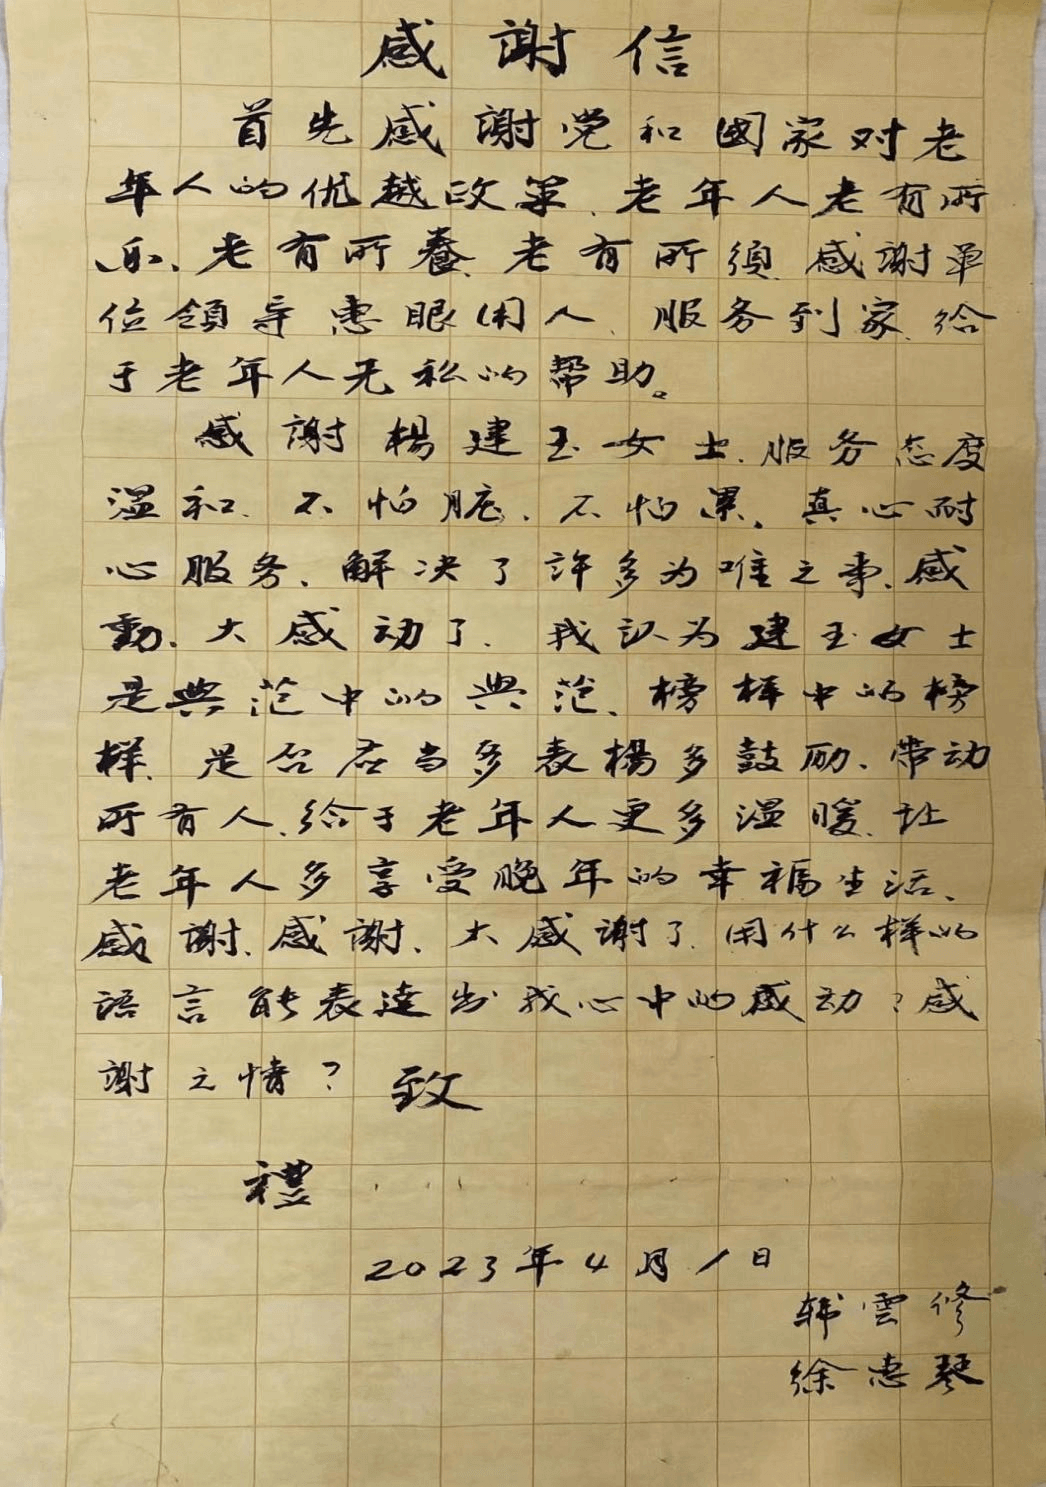 感謝信
首先感謝党和國家对老
年人的优越政策、老年人老有所
乐、老有所養、老有所須、感謝单
位領导惠眼用人、服务到家、给
于老年人无私的帮助。
感謝楊建玉女士、服务态度
溫和、不怕脏、不怕累、真心耐
心服务、解决了許多为难之事、感
動、大感动了、我认为建玉女士
是典范中的典范、榜样中的榜
样、是否应当多表楊多鼓励、带动
所有人、给于老年人更多溫暖、让
老年人多享受晚年的幸福生活、
感謝、感謝、大感謝了、用什么样的
語言能表達出我心中的感动？感
謝之情？ 致
禮
2023年4月1日
韩雲修
徐惠琴